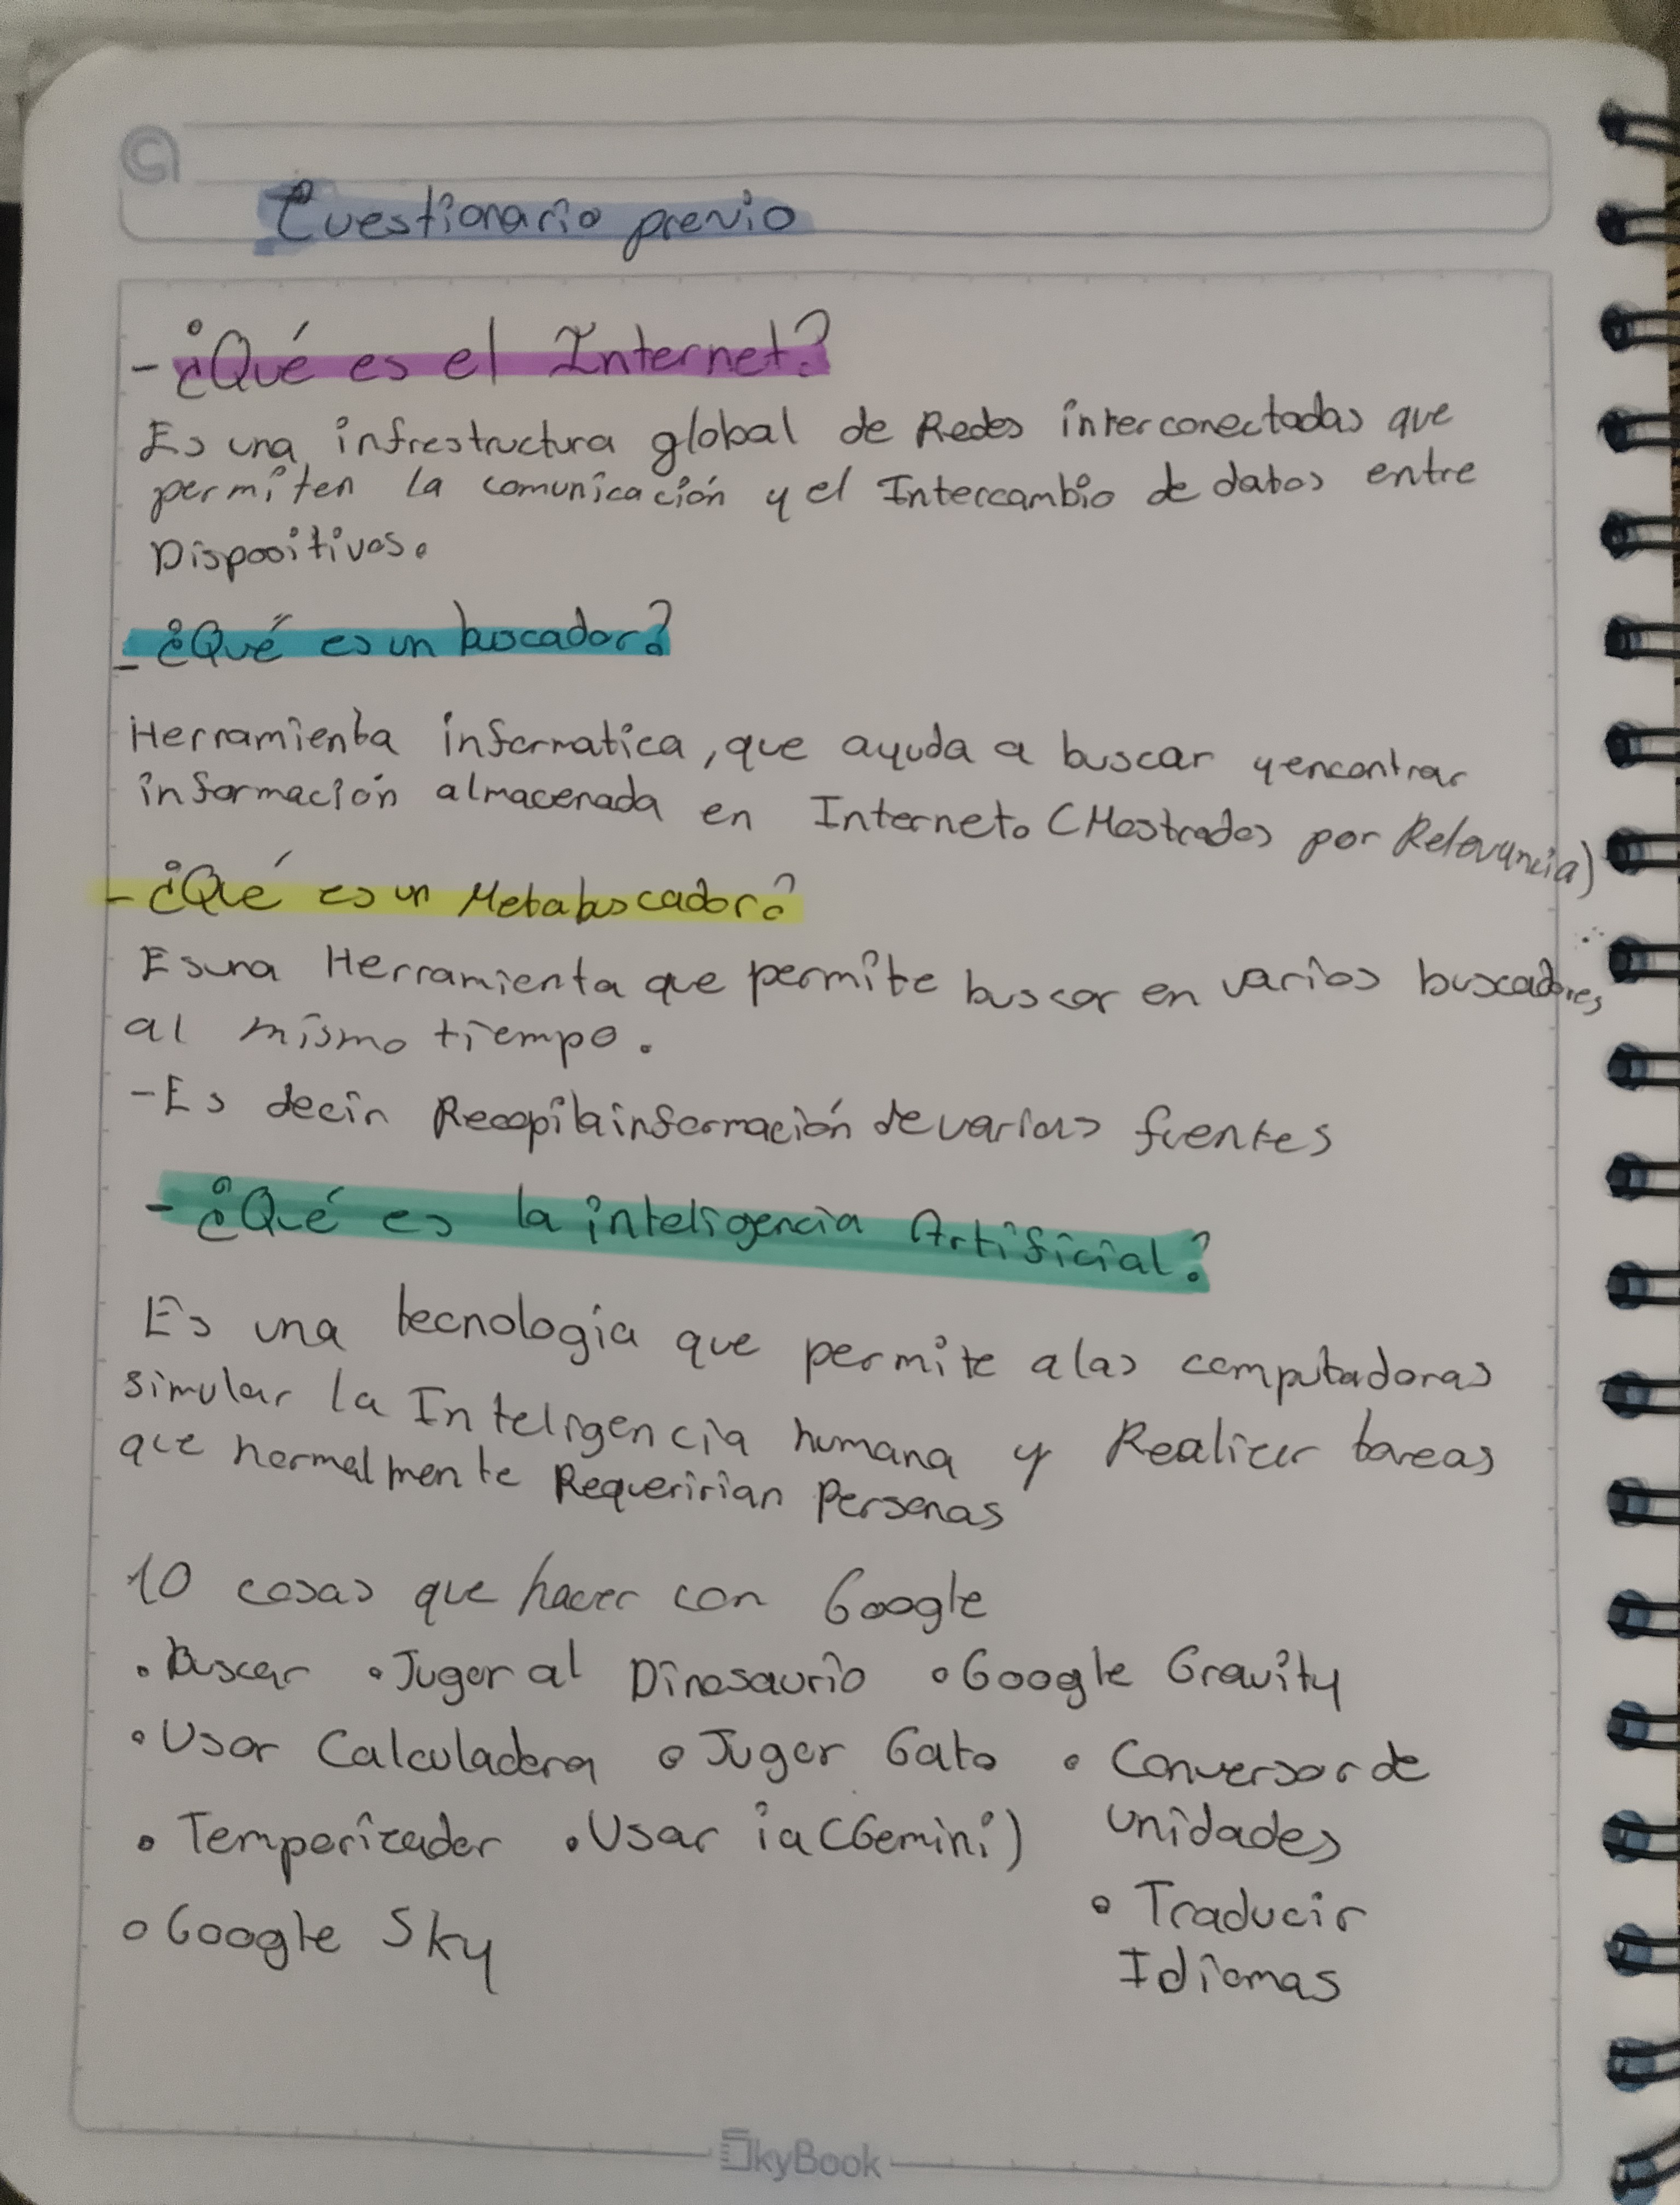 Cuestionario previo
- ¿Qué es el Internet?
Es una infrestructura global de Redes interconectadas que
permiten la comunicación y el Intercambio de datos entre
Dispositivos.
- ¿Qué es un buscador?
Herramienta informatica, que ayuda a buscar y encontrar
información almacenada en Internet. (Mostrados por Relevancia)
- ¿Qué es un Metabuscador?
Es una Herramienta que permite buscar en varios buscadores
al mismo tiempo.
- Es decir Recopila información de varias fuentes
- ¿Qué es la inteligencia Artificial?
Es una tecnología que permite a las computadoras
simular la Inteligencia humana y Realizar tareas
que normalmente Requeririan Personas
10 cosas que hacer con Google
• Buscar • Jugar al Dinosaurio • Google Gravity
• Usar Calculadora • Jugar Gato • Conversor de
unidades
• Temporizador • Usar ia (Gemini)
• Traducir
Idiomas
• Google Sky
SkyBook